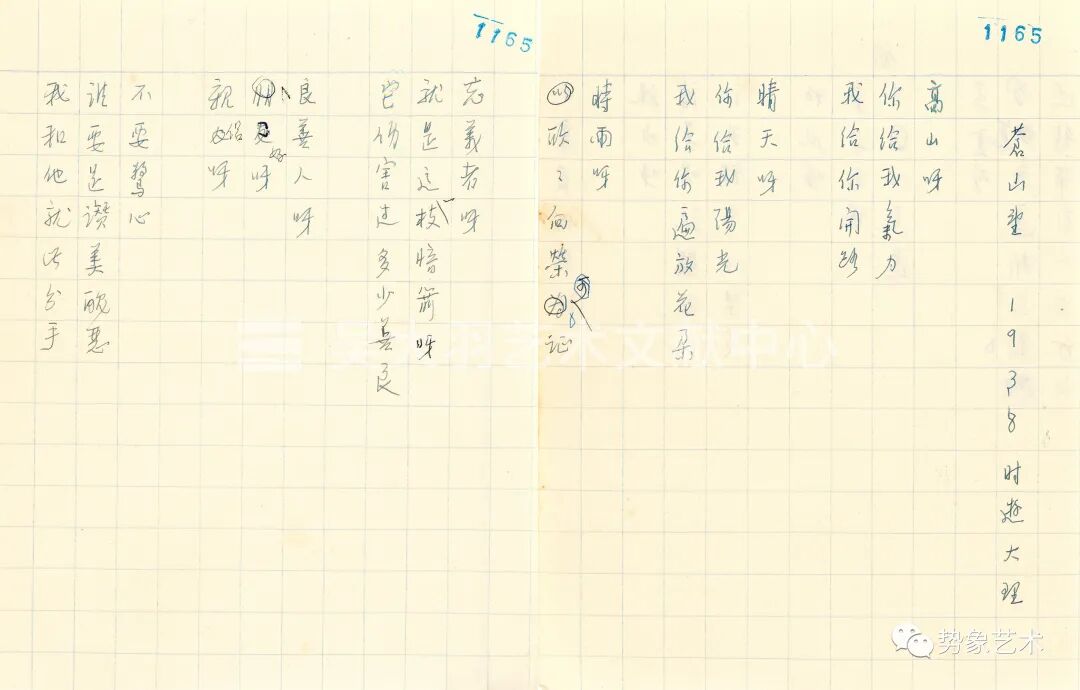 1165
蒼山 1938 时遊大理
高山呀
你給我氣力
我給你開路
晴天呀
你給我陽光
我给你遍放花朵
時雨呀
欣々向榮为证
1165
忘義者呀
就是这枝暗箭呀
它伤害过多少善良
良善人呀
好呀
親侶呀
不要驚心
谁要是讚美醜惡
我和他就此分手
吴大羽艺术文献中心
势象艺术